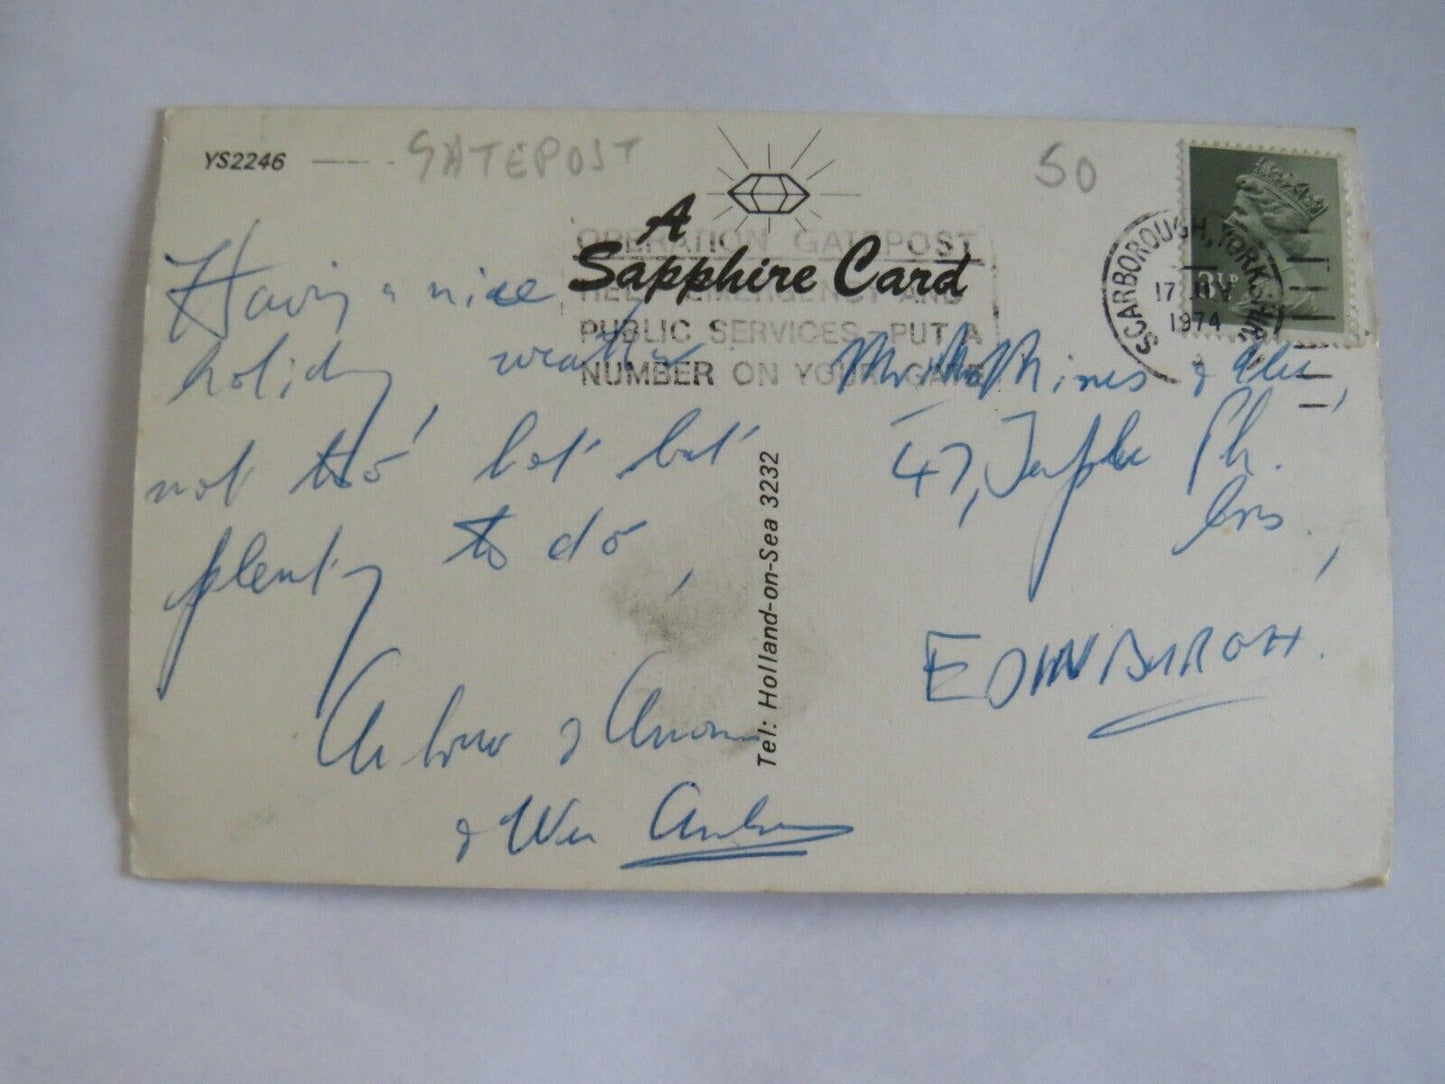 YS2246
GATEPOST
50
A
Sapphire Card
OPERATION GATEPOST
HELP EMERGENCY AND
PUBLIC SERVICES - PUT A
NUMBER ON YOUR GATE
SCARBOROUGH, YORKSHIRE
17 1974
Having a nice
holiday, weather
not too hot but
plenty to do,
&
& Wee
Tel: Holland-on-Sea 3232
&
47, Pk.
EDINBURGH.